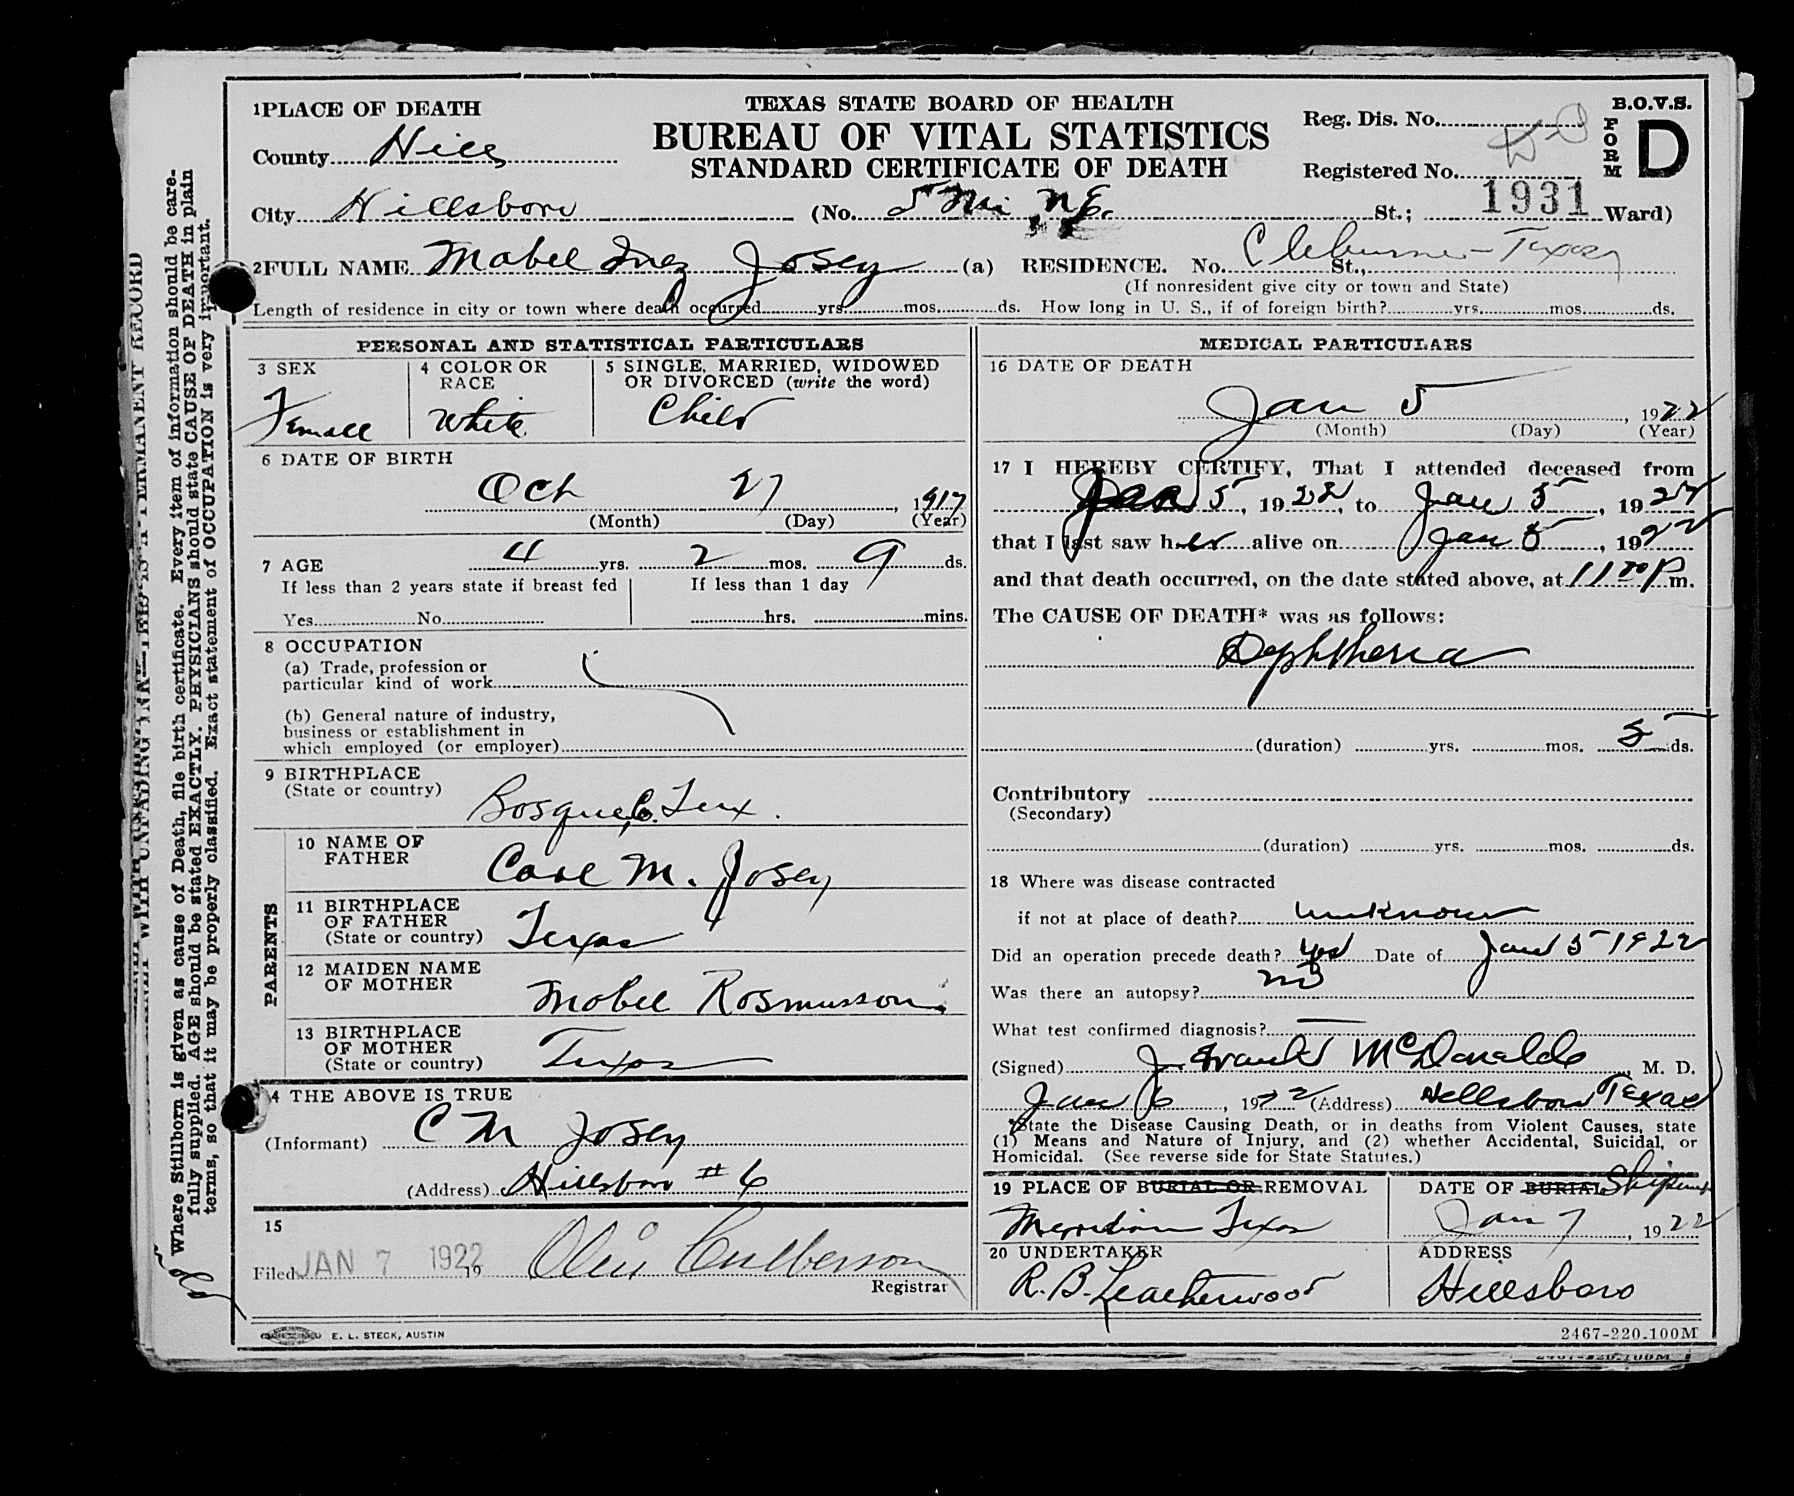 TEXAS STATE BOARD OF HEALTH
BUREAU OF VITAL STATISTICS
STANDARD CERTIFICATE OF DEATH
B.O.V.S.
FORM D
Reg. Dis. No.
Registered No.
1931
1 PLACE OF DEATH
County Hill
City Hillsboro (No. 5 Mi N E. St.; Ward)
2 FULL NAME Mabel Inez Josey (a) RESIDENCE. No. Cleburne - Texas St.,
(If nonresident give city or town and State)
Length of residence in city or town where death occurred yrs. mos. ds. How long in U. S., if of foreign birth? yrs. mos. ds.
PERSONAL AND STATISTICAL PARTICULARS
3 SEX
Female
4 COLOR OR RACE
White
5 SINGLE, MARRIED, WIDOWED
OR DIVORCED (write the word)
Child
6 DATE OF BIRTH
Oct 27, 1917
(Month) (Day) (Year)
7 AGE 4 yrs. 2 mos. 9 ds.
If less than 2 years state if breast fed
Yes No
If less than 1 day
hrs. mins.
8 OCCUPATION
(a) Trade, profession or
particular kind of work
(b) General nature of industry,
business or establishment in
which employed (or employer)
9 BIRTHPLACE
(State or country)
Bosque Co. Tex.
PARENTS
10 NAME OF
FATHER
Carl M. Josey
11 BIRTHPLACE
OF FATHER
(State or country)
Texas
12 MAIDEN NAME
OF MOTHER
Mabel Rosmusson
13 BIRTHPLACE
OF MOTHER
(State or country)
Texas
14 THE ABOVE IS TRUE
(Informant) C M Josey
(Address) Hillsboro # 6
15
Filed JAN 7 1922 19
Olin Culberson
Registrar
MEDICAL PARTICULARS
16 DATE OF DEATH
Jan 5, 1922
(Month) (Day) (Year)
17 I HEREBY CERTIFY, That I attended deceased from
Jan 5, 1922, to Jan 5, 1922
that I last saw her alive on Jan 5, 1922
and that death occurred, on the date stated above, at 11 00 P m.
The CAUSE OF DEATH* was as follows:
Dephtheria
(duration) yrs. mos. 5 ds.
Contributory
(Secondary)
(duration) yrs. mos. ds.
18 Where was disease contracted
if not at place of death? unknown
Did an operation precede death? yes Date of Jan 5 1922
Was there an autopsy? no
What test confirmed diagnosis?
(Signed) J. Frank McDonald M. D.
Jan 6, 1922 (Address) Hillsboro Texas
*State the Disease Causing Death, or in deaths from Violent Causes, state
(1) Means and Nature of Injury, and (2) whether Accidental, Suicidal, or
Homicidal. (See reverse side for State Statutes.)
19 PLACE OF BURIAL OR REMOVAL
Meridian Texas
DATE OF BURIAL Shipment
Jan 7, 1922
20 UNDERTAKER
R. B. Leatherwood
ADDRESS
Hillsboro
E. L. STECK, AUSTIN
2467-220-100M
2467-220-100M
Where Stillborn is given as cause of Death, file birth certificate. Every item of information should be care-
fully supplied. AGE should be stated EXACTLY. PHYSICIANS should state CAUSE OF DEATH in plain
terms, so that it may be properly classified. Exact statement of OCCUPATION is very important.
WITH UNFADING INK—THIS IS A PERMANENT RECORD